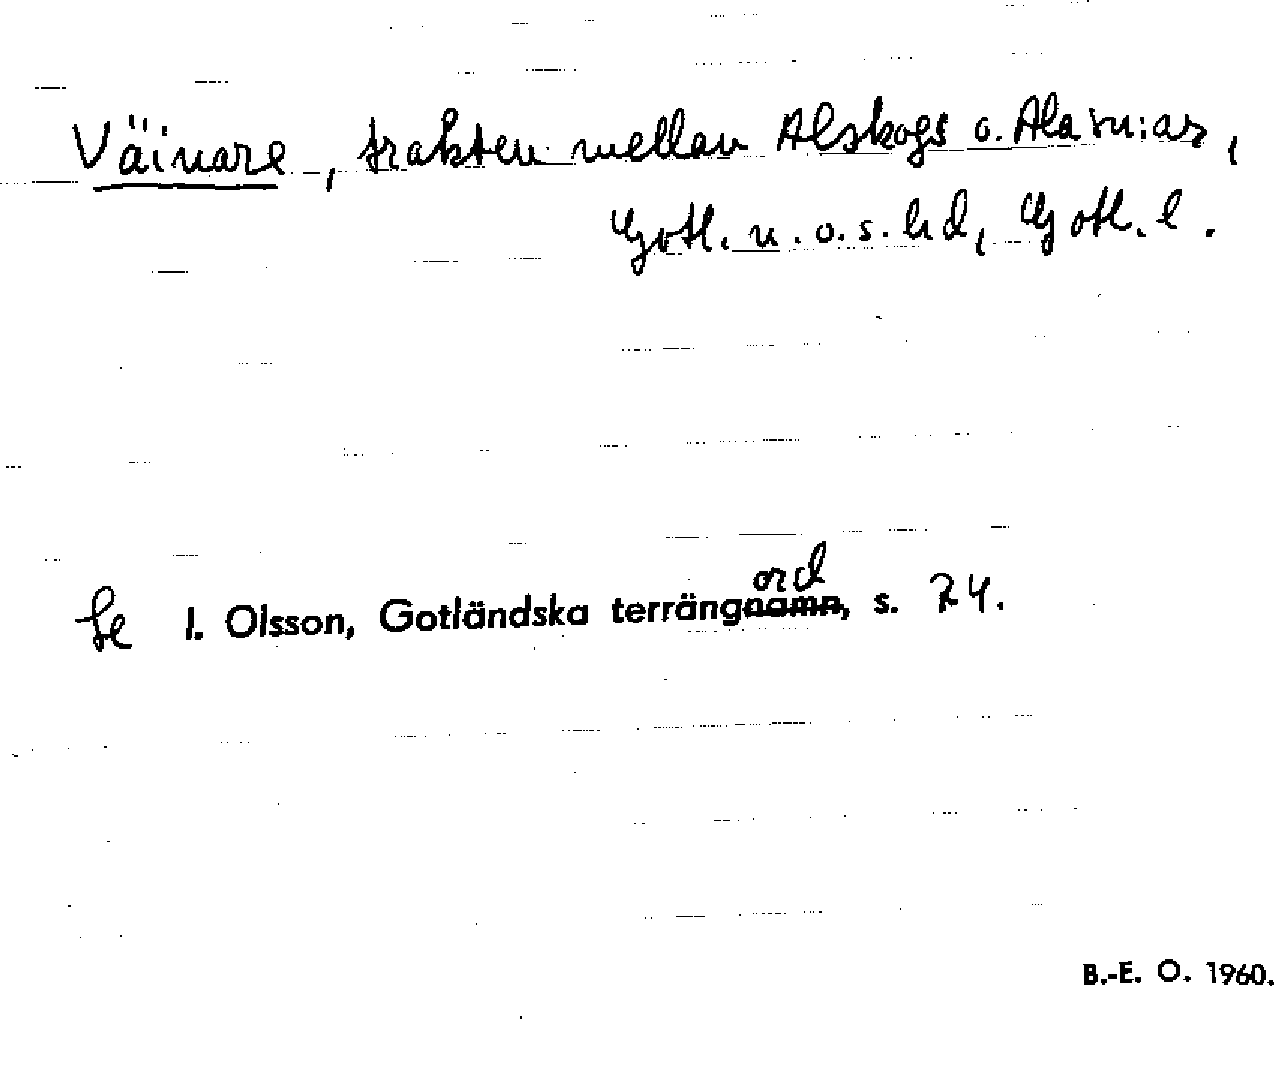 Väinare, trakten mellan Alskogs o. Ala sn:ar,
Gotl. n. o. s. hd, Gotl. l.
Se I. Olsson, Gotländska terrängnamnord, s. 24.
B.-E. O. 1960.